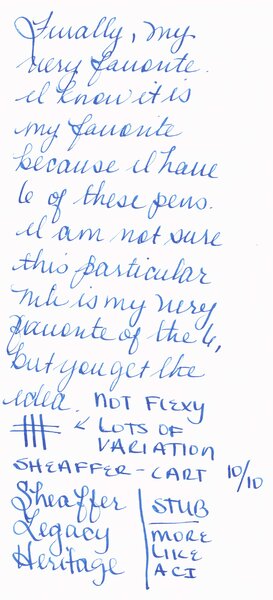 Finally, my
very favorite.
I know it is
my favorite
because I have
6 of these pens.
I am not sure
this particular
nib is my very
favorite of the 6,
but you get the
idea. NOT FLEXY
← LOTS OF
VARIATION
SHEAFFER - CART 10/10
Sheaffer
Legacy
Heritage
STUB
MORE
LIKE
A CI